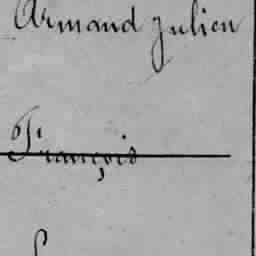 Armand Julien
François